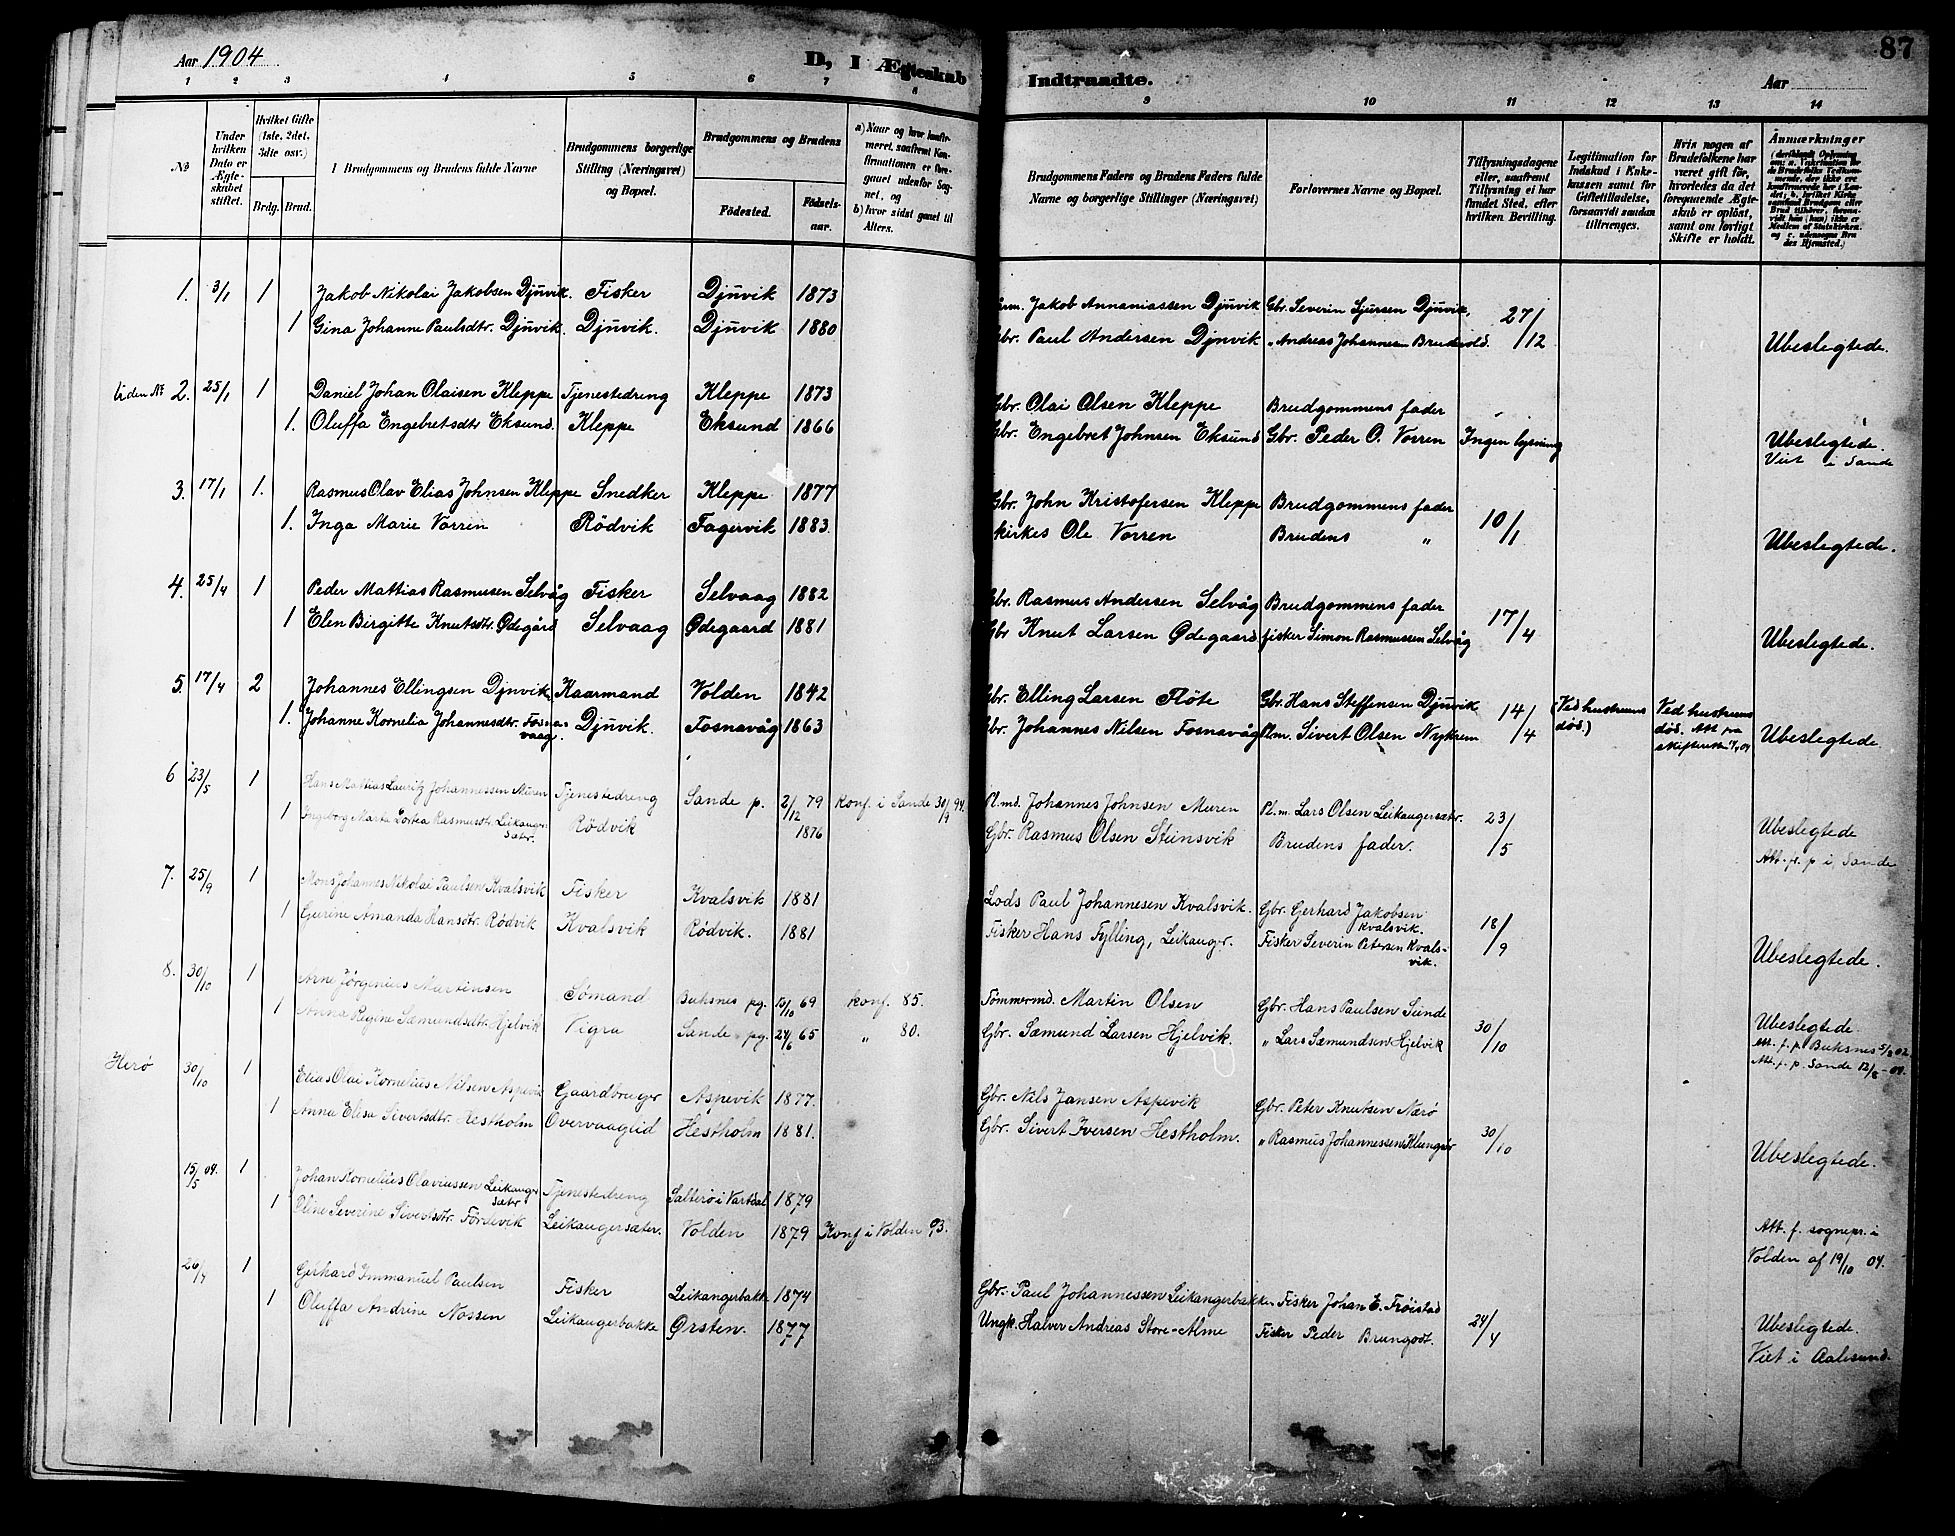 Aar 1904
D, I Ægteskab Indtraadte.
87
Aar
1 2 3 4 5 6 7 8 9 10 11 12 13 14
No
Under hvilken Dato er Ægteskabet stiftet.
Hvilket Gifte (1ste, 2det, 3die osv.)
Brdg. Brud.
I Brudgommens og Brudens fulde Navne
Brudgommens borgerlige Stilling (Næringsvei) og Bopæl.
Brudgommens og Brudens
Födested.
Födsels-aar.
a) Naar og hvor konfirmeret, saafremt Konfirmationen er foregaaet udenfor Sognet, og b) hvor sidst gaaet til Alters.
Brudgommens Faders og Brudens Faders fulde Navne og borgerlige Stillinger (Næringsvei)
Forlovernes Navne og Bopæl.
Tillysningsdagene eller, saafremt Tillysning ei har fundet Sted, efter hvilken Bevilling.
Legitimation for Indskud i Enkekassen samt for Giftetilladelse, forsaavidt saadan tiltrænges.
Hvis nogen af Brudefolkene har været gift för, hvorledes da det foregaaende Ægteskab er oplöst, samt om lovligt Skifte er holdt.
Anmærkninger
1. 3/1 1 Jakob Nikolai Jakobsen Djuvik. Fisker Djuvik 1873 Jakob Annaniassen Djuvik Gbr. Severin Sjursen Djuvik,
1 Gina Johanne Paulsdtr. Djuvik. Djuvik. Djuvik 1880 Gbr. Paul Andersen Djuvik " Andreas Johannesen Brudevold. 27/12 Ubeslegtede.
Uden No 2. 25/1 1 Daniel Johan Olaisen Kleppe Tjenestedreng Kleppe 1873 Gbr. Olai Olsen Kleppe Brudgommens fader
1. Oluffa Engebretsdtr Eksund. Kleppe Eksund 1866 Gbr. Engebret Johnsen Eksund Gbr. Peder O. Vorren Ingen lysning Ubeslegtede.
Viet i Sande
3. 17/1 1. Rasmus Olav Elias Johnsen Kleppe Snedker Kleppe 1877 Gbr. John Kristofersen Kleppe Brudgommens fader
1. Inga Marie Vorren Rödvik Fagervik 1883. Ole Vorren Brudens " 10/1 Ubeslegtede.
4. 25/4 1 Peder Mattias Rasmusen Selvåg Fisker Selvaag 1882 Gbr. Rasmus Andersen Selvåg Brudgommens fader
1 Elen Birgitte Knutsdtr. Ødegård Selvaag Ødegaard 1881 Gbr Knut Larsen Ødegaard fisker Simon Rasmussen Selvåg 17/4 Ubeslegtede.
5. 17/4 2 Johannes Ellingsen Djuvik Kaarmand Volden 1842 Gbr. Elling Larsen Flöte Gbr. Hans Steffensen Djuvik (Ved hustruens død.) Ved hustruens død. Att fra skifteretten
1. Johanne Kornelia Johannesdtr. Fosnavaag. Djuvik. Fosnavåg 1863 Gbr. Johannes Nilsen Fosnavåg Plm. Sivert Olsen Myksen 14/4 Ubeslegtede
6 23/5 1 Hans Mattias Lauritz Johannessen Muren Tjenestedreng Sande p. 2/12 79 Konf. i Sande 30/9 94. Pl.md. Johannes Johnsen Muren Pl.m. Lars Olsen Leikangersætr.
1 Ingeborg Marta Dortea Rasmusdtr. Leikangersætr. Rödvik 1876 Gbr. Rasmus Olsen Steinsvik Brudens fader. 23/5 Ubeslegtede
Att. fr. p i Sande
7. 25/9 1 Mons Johannes Nikolai Paulsen Kvalsvik Fisker Kvalsvik 1881 Lods Paul Johannesen Kvalsvik. Gbr. Gerhard Jakobsen Kvalsvik.
1 Gurine Amanda Hansdtr. Rödvik Kvalsvik Rödvik. 1881 Fisker Hans Fylling, Leikanger. Fisker Severin Petersen Kvalsvik. 18/9 Ubeslegtede.
8. 30/10 1 Arne Jörginius Martinsen Sömand Buksnes pg. 15/10 69 Konf. 85. Tömmermd. Martin Olsen Gbr. Hans Paulsen Sunde
1 Anna Regine Sæmundsdtr. Hjelvik Vigra Sande pg. 24/6 65 " 80. Gbr. Sæmund Larsen Hjelvik. " Lars Sæmundsen Hjelvik 30/10 Ubeslegtede
Att. f. p. Buksnes 5/8 02.
Att. f. p. Sande 12/8 - 04.
Herö 30/10 1 Elias Olai Kornelius Nilsen Aspevik Gaardbruger Aspevik 1877. Gbr. Nils Jansen Aspevik Gbr. Peter Knutsen Nærö
1 Anna Elisa Sivertsdtr. Hestholm Overvaaglid Hestholm 1881. Gbr. Sivert Iversen Hestholm. " Rasmus Johannessen Klungsör 30/10 Ubeslegtede.
15/5 04. 1 Johan Kornelius Olaviussen Leikangersætr Tjenestedreng Salterö i Vartdal 1879
1 Oline Severine Sivertsdtr. Fördevik Leikangersæter. Volden 1879 Konf i Volden 93. Att. f. sognepr. i
Volden af 19/10 04.
26/4 1 Gerhard Immanuel Paulsen Fisker Leikangerbakk 1874 Gbr. Paul Johannessen Leikangerbakken Fisker Johan E. Fröistad
1 Oluffa Andrine Nossen Leikaugerbakke Ørsten. 1877 Ungk. Halver Andreas Store-Alme Fisker Peder Brungodt. 24/4 Ubeslegtede.
Viet i Aalesund.